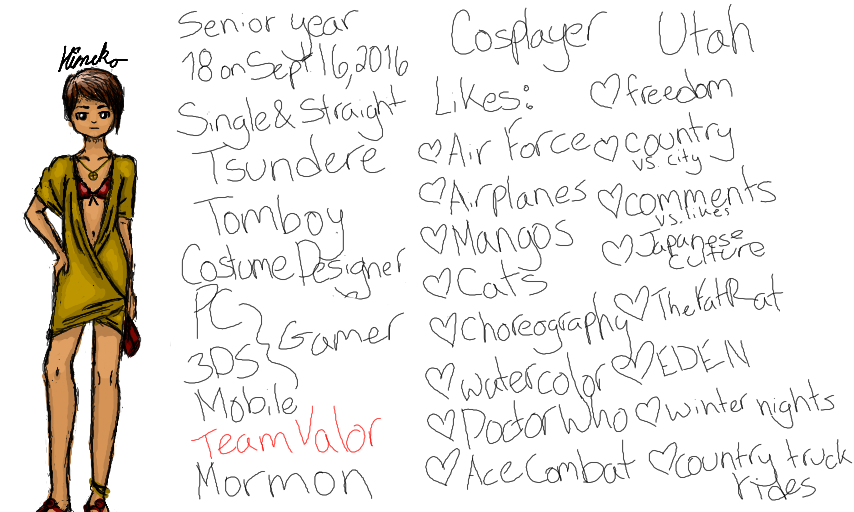 Himeko
Senior year
18 on Sept 16, 2016
Single & Straight
Tsundere
Tomboy
Costume Designer
PC
3DS
Gamer
Mobile
Team Valor
Mormon
Cosplayer
Likes:
Air Force
Airplanes
Mangos
Cats
Choreography
watercolor
Doctor Who
Ace Combat
Utah
freedom
country
vs. city
comments
vs. likes
Japanese
culture
TheFatRat
EDEN
winter nights
country truck
rides